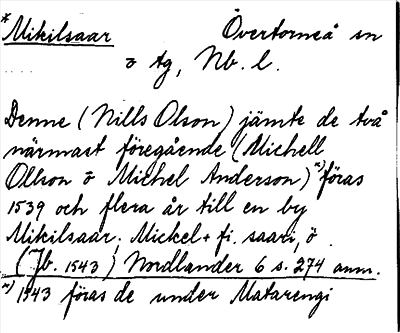 *Mikilsaar Övertorneå sn
o tg, Nb. l.
Denne (Nills Olson) jämte de två
närmast föregående (Michell
Ollson o Michel Anderson)*) föras
1539 och flera år till en by
Mikilsaar; Mickel + fi. saari, ö
(Jb. 1543) Nordlander 6 s. 274 anm.
*) 1543 föras de under Matarengi